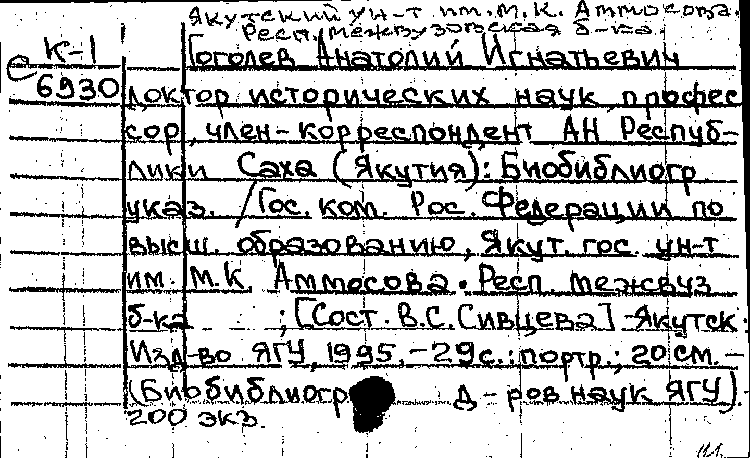 Якутский ун-т им. М.К. Аммосова.
Респ. межвузовская б-ка.
К-1
е
6930
Гоголев Анатолий Игнатьевич
доктор исторических наук, профес
сор, член-корреспондент АН Респуб-
лики Саха (Якутия): Биобиблиогр
указ. / Гос. ком. Рос. Федерации по
высш. образованию, Якут. гос. ун-т
им. М.К. Аммосова. Респ. межвуз
б-ка ; [Сост. В.С. Сивцева] - Якутск.
Изд-во ЯГУ, 1995. - 29 с.: портр.; 20 см. -
(Библиогр д-ров наук ЯГУ).
200 экз.